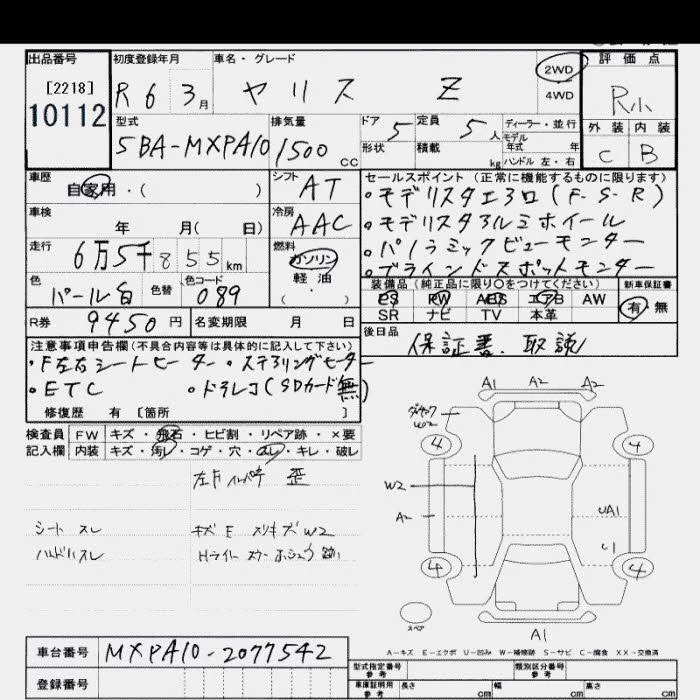 出品番号 初度登録年月 車名・グレード 評価点
[2218] R 6 3月 ヤリス Z 2WD R小
10112 4WD
型式 排気量 ドア 定員 ディーラー・並行 外装 内装
5BA-MXPA10 1500cc 5 5人 モデル年式 年 C B
形状 積載 kg ハンドル 左・右
車歴 シフト セールスポイント(正常に機能するものに限ります)
自家用・( ) AT ・モデリスタエアロ(F.S.R)
車検 冷房 ・モデリスタアルミホイール
年 月( 日) AAC ・パノラミックビューモニター
走行 燃料 ・ブラインドスポットモニター
6万5千855km ガソリン
軽油
( )
色 色替 色コード 装備品(純正品に限り○をつけてください) 新車保証書
パール白 089 PS PW ABS エアB AW 有・無
SR ナビ TV 本革
R券 9450円 名変期限 月 日 後日品
保証書、取説
注意事項申告欄(不具合内容等は具体的に記入して下さい)
・F左右シートヒーター ・ステアリングヒーター
・ETC ・ドラレコ(SDカード無)
修復歴 有 [箇所 ]
検査員 FW キズ・飛石・ヒビ割・リペア跡・×要
記入欄 内装 キズ・汚レ・コゲ・穴・スレ・キレ・破レ
歪
シート スレ キズ E スリキズ W2
ハンドルスレ Hライト
A1 A2 A2
W2
4 4
W2
A2 UA1
U1
4 4
スペア
A1
A-キズ E-エクボ U-凹み W-補修跡 S-サビ C-腐食 XX-交換済
車台番号 MXPA10-2077542 型式指定番号 参考 類別区分番号 参考
登録番号 車庫証明用 参考 長さ cm 幅 cm 高さ cm